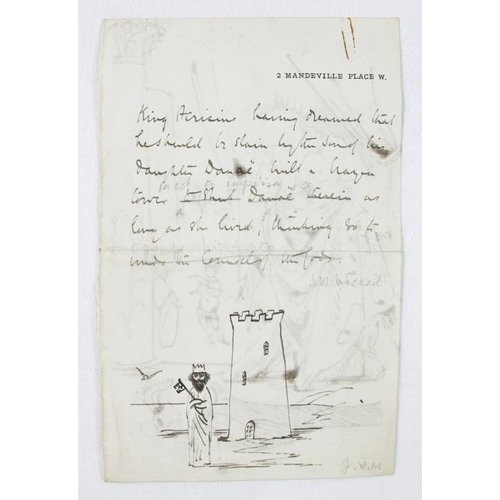 2 MANDEVILLE PLACE W.
King Acrisius having dreamed that
he should be slain by the son of his
daughter Danaë, built a brazen
tower to shut Danaë therein as
long as she lived, thinking so to
undo the Counsels of the Gods.